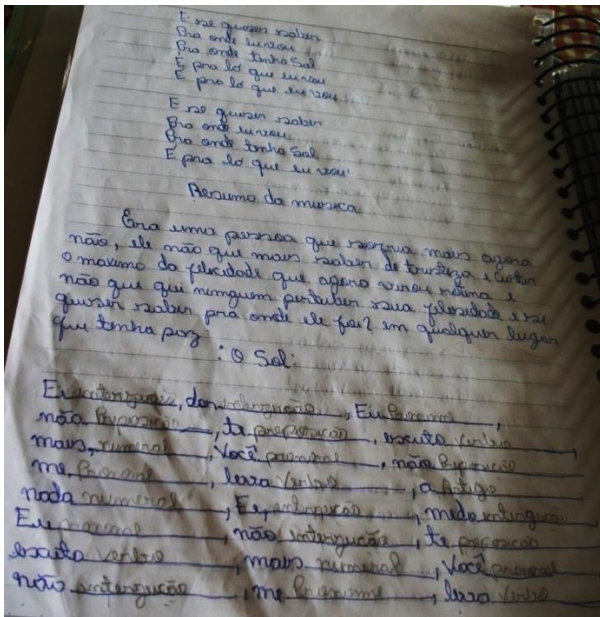 E se quiser saber
Pra onde eu vou
Pra onde tenha Sol
E pra lá que eu vou
E pra lá que eu vou
E se quiser saber
Pra onde eu vou
Pra onde tenha Sol
E pra lá que eu vou
Resumo da musica
Era uma pessoa que sofria mais agora
não, ele não que mais saber de tristeza, e curtir
o maximo da felicidade que agora virou rotina e
não que qui ninguem pertuber sua felosidade e se
quiser saber pra onde ele foi? em qualquer lugar
que tenha paz : O Sol:
Ei interjução, dor interjução, Eu Pronome,
não Preposição, te preposição, escuto verbo,
mais, numeral, Você pronome, não Preposição
me, Pronome, leva Verbo, a Artigo
nada numeral, Ei, interjução, medo interjução
Eu pronome, não interjução, te preposição
escuto verbo, mais numeral, Você pronome
não interjução, me Pronome, leva Verbo